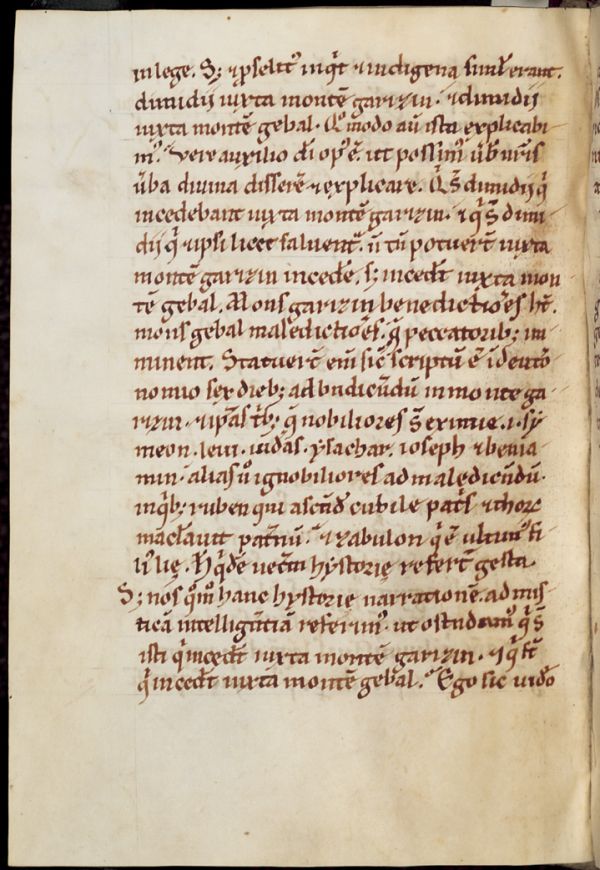 in lege. S; & p̱selit᾽ inqͥt & indigena simł erant.
dimidii iuxta montē garizin. & dimidii
iuxta montē gebal. Qͦmodo aū ista explicabi
m᷒. Vere auxilio dī op᷒ ē. ut possim᷒ ūb nr̄is
ūba diuina disserē & explicare. Qͥ s̄ dimidii qͥ
incedebant iuxta montē garizin. & qͥ s̄ dimi
dii qͥ & ipsi licet saluent᷒. n̄ tn̄ potuer̄t iuxta
montē garizin incedē. s; inced̄t iuxta mon
tē gebal. Mons garizin benedictio᷒es ht̄.
mons gebal maledictio᷒es. q̄ peccatorib; im
minent. Statuer̄t eni᷒ sic̄ scriptū ē ideuto᷒
nomio sex dieb; ad bn̄dicn̄dū in monte ga
rizin. & ip̄as tͥb; q̄ nobiliores s̄ eximie. i. sy
meon. leui. iudas. ysachar. ioseph & benia
min. alias ū ignobiliores ad maledicn̄dū.
inqͥb; ruben qui ascn̄d̄ cubile pat̄s & thor᷒
maclauit pat̄nū. & zabulon qͥ ē ultim᷒ fi
li᷒ lię. Hͨ qͥdē uet̄m hystorię refer̄t gesta.
S; nos qͦm᷒ hanc hystorię narrationē. ad mis
ticā intellign̄tiā referim᷒. ut ostn̄dam᷒ qͥ s̄
isti qͥ inced̄t iuxta montē garizin. & qͥ s̄t
qͥ inced̄t iuxta montē gebal. Ego sic uid᷒o